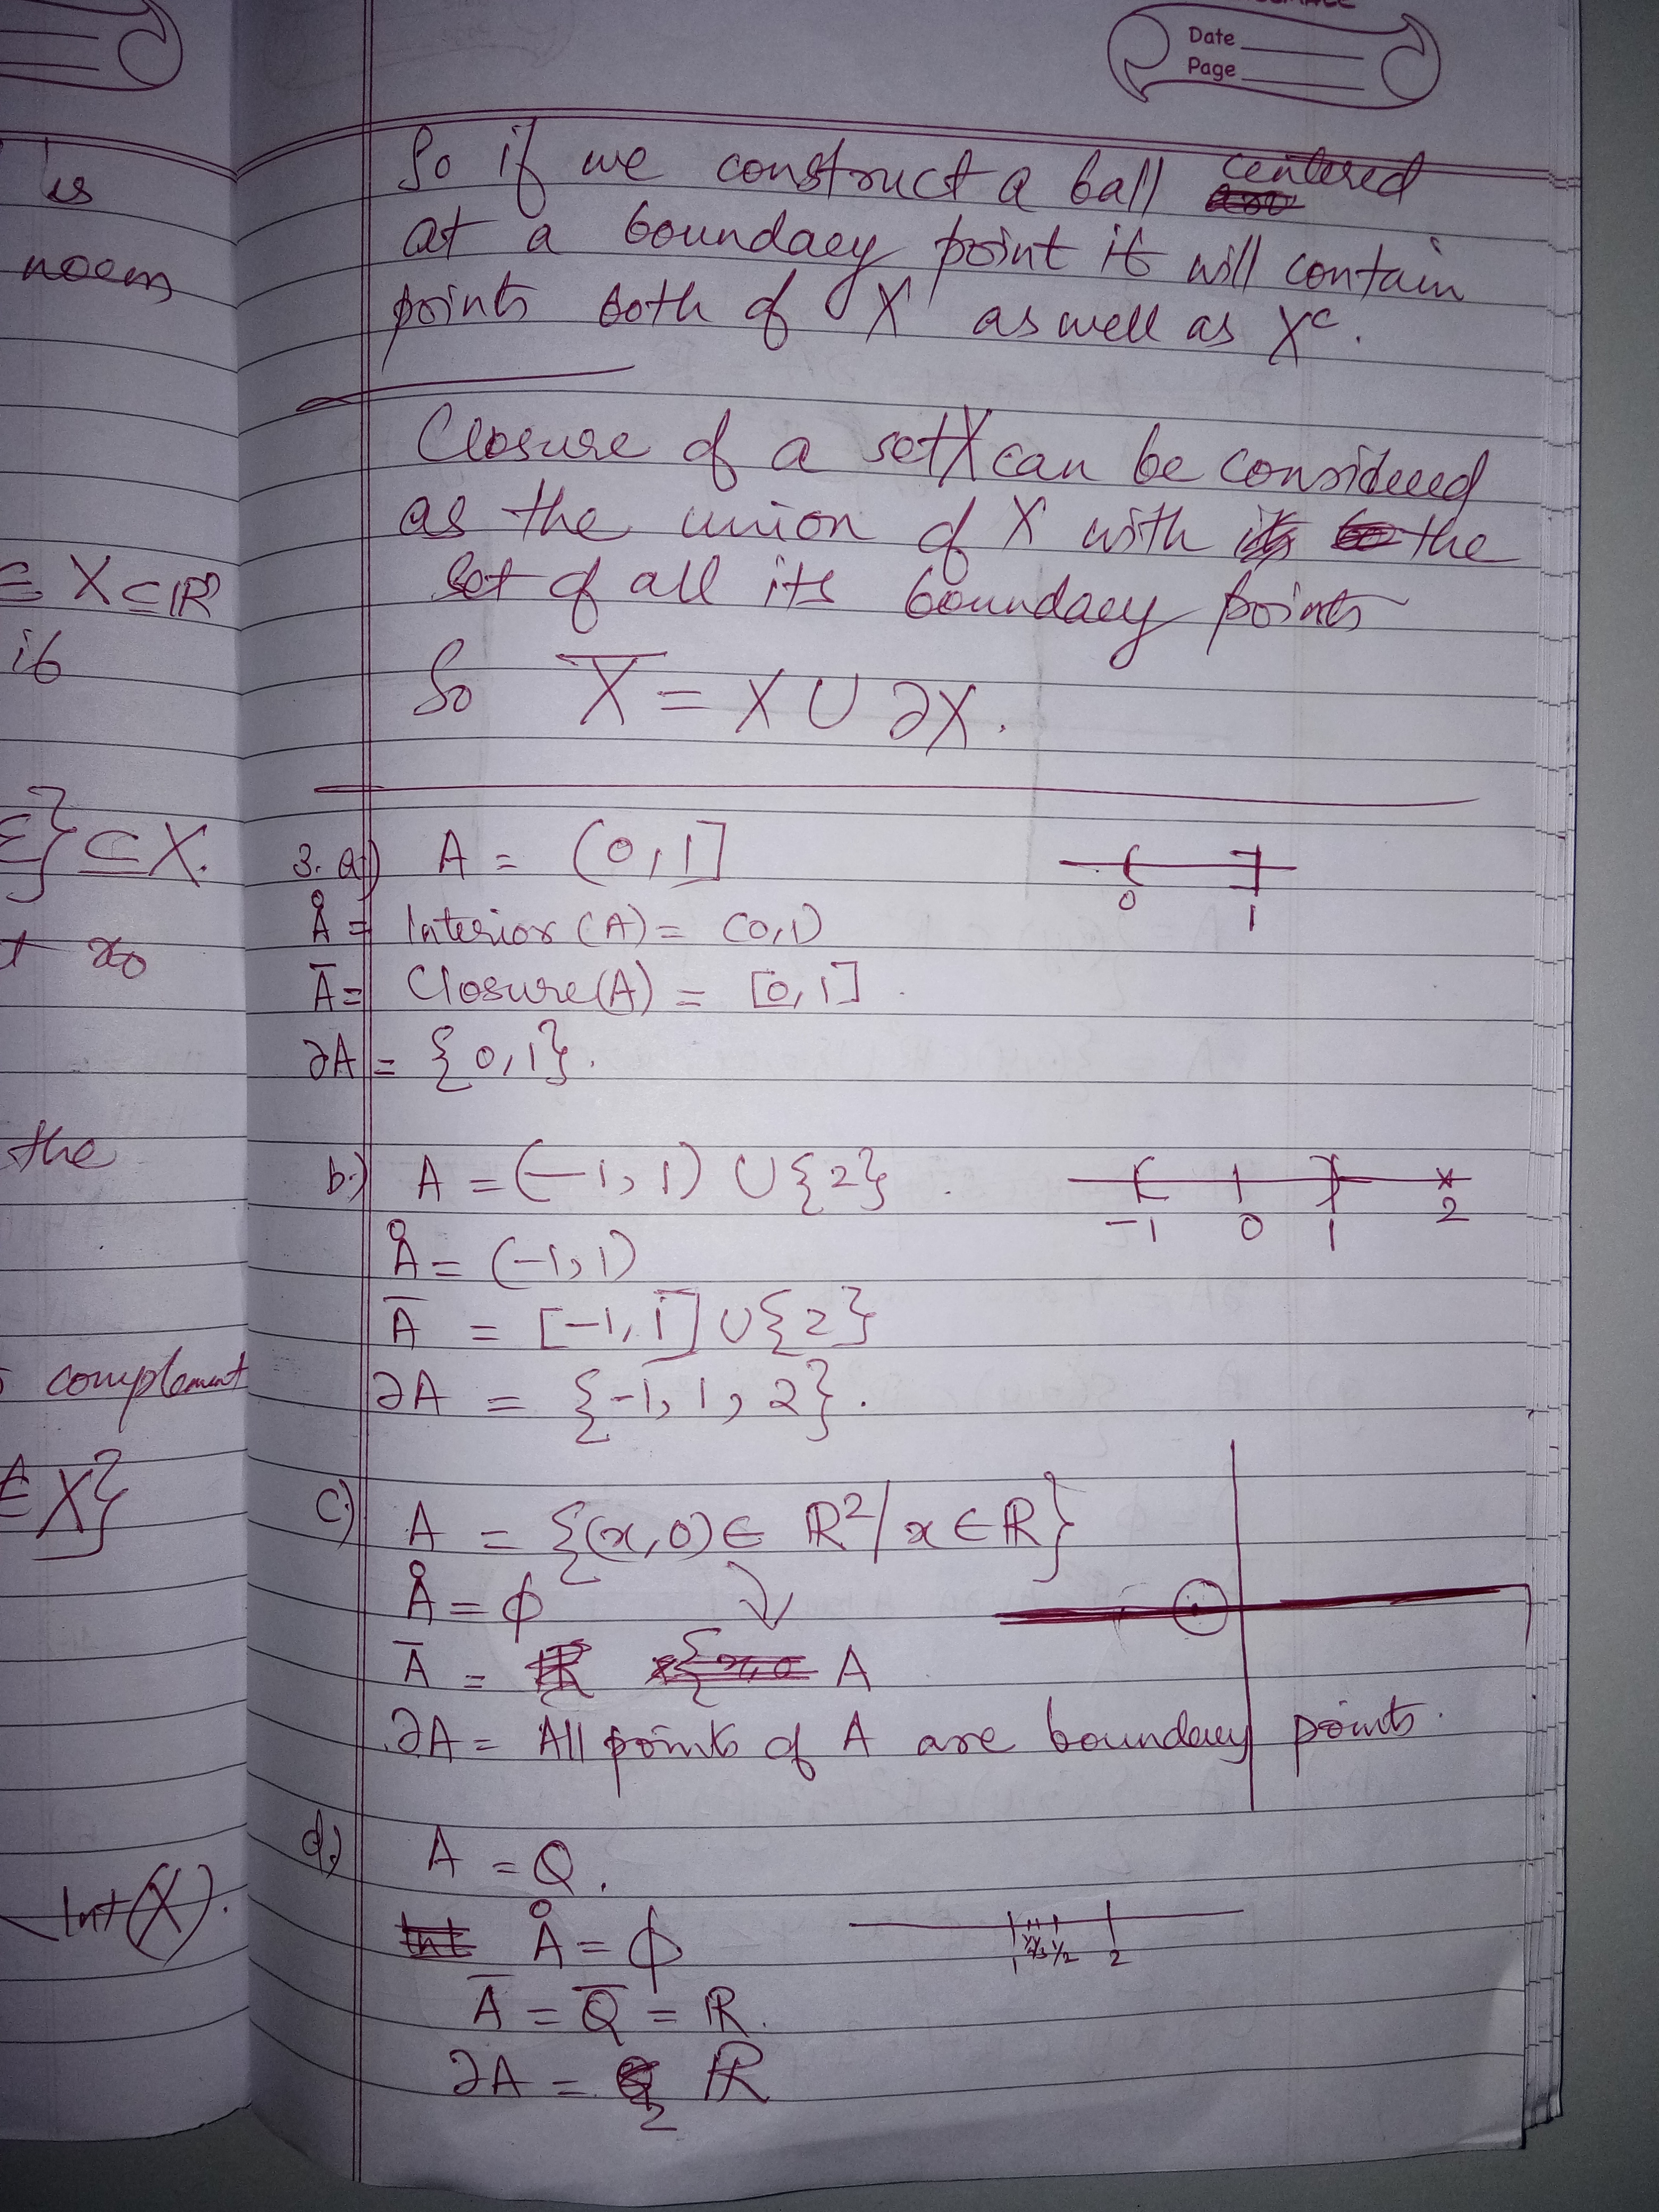 Date
Page
is
noem
⊆ X ⊆ ℝ
if
ε} ⊆ X.
x₀
the
complement
∈ X}
Int(X).
So if we construct a ball centered
at a boundary point it will contain
points both of X as well as Xᶜ.
Closure of a set X can be considered
as the union of X with the
set of all its boundary points
So X̅ = X ∪ ∂X.
3. a) A = (0,1]
0 1
Å = Interior (A) = (0,1)
A̅ = Closure(A) = [0,1].
∂A = {0,1}.
b.) A = (-1,1) ∪ {2}.
-1 0 1 2
Å = (-1,1)
A̅ = [-1,1] ∪ {2}
∂A = {-1, 1, 2}.
c.) A = {(x,0) ∈ ℝ² / x ∈ ℝ}
Å = ϕ
A̅ = A
∂A = All points of A are boundary points.
d.) A = Q.
Å = ϕ
1 1/2 2
A̅ = Q̅ = ℝ.
∂A = ℝ